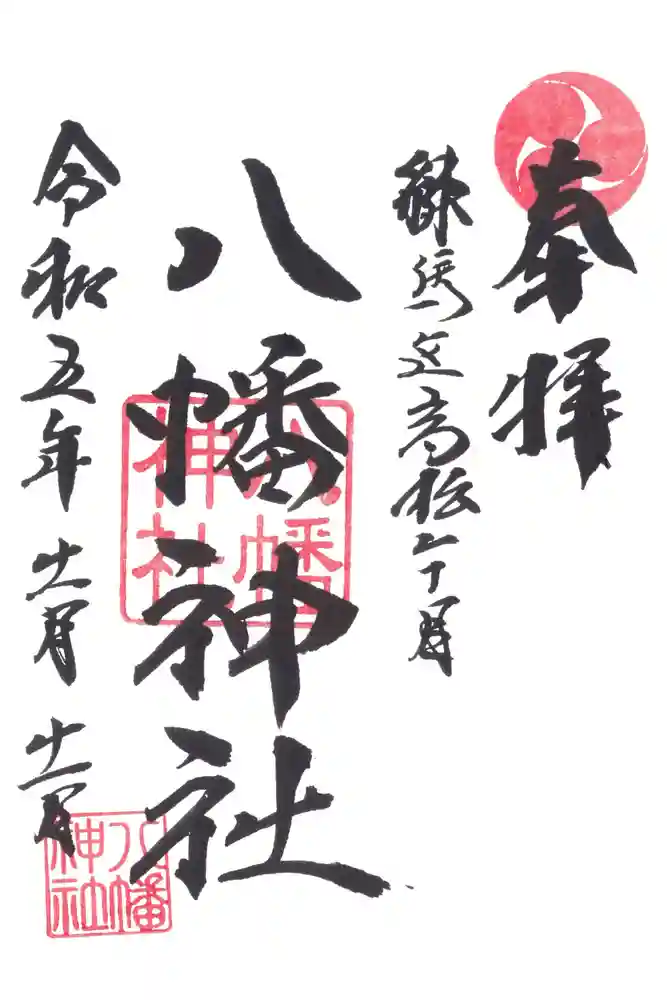 奉拝
高松
八幡神社
令和五年十一月十一日
八幡神社
八幡神社